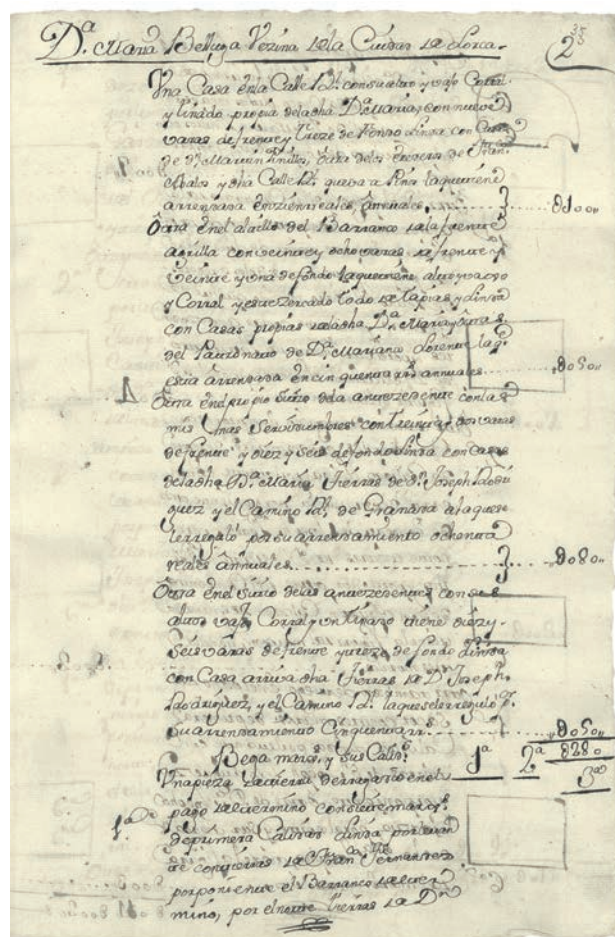 D.ª Maria Belluga Vezina de la Ciudad de Lorca.
Una Casa en la Calle R.l con su alto y vajo Corral
y linado propia de la dha D.ª Maria, con nueve
varas de frente y treze de fondo linda con Casas
de D.n Martin Pinilla, otra de los erederos de Fran.co
Abalos y dha Calle R.l que va a la que tiene
arrendada en zien reales annuales. ⸺ 8100,,
Otra en el del Barranco de la frente
con veinte y ocho varas de frente y
veinte y una de fondo la que tiene alto y vajo
y Corral y este zercado todo de tapias y linda
con Casas propias de la dha D.ª Maria y otras
del Patronato de D.ª Mariana Lorente la q.e
esta arrendada en cinquenta r.s annuales ⸺ 8050,,
Otra en el propio sitio de la antezedente con las
mis mas servidumbres con treinta y dos varas
de frente y diez y seis de fondo linda con Casas
de la dha D.ª Maria tierras de D.n Joseph Rodri
guez y el Camino R.l de Granada a la que se
le reguló por su arrendamiento ochenta
reales annuales ⸺ 8080,,
Otra en el sitio de las antezedentes con sus
altos vajos Corral y un tinazo tiene diez y
seis varas de frente y treze de fondo linda
con Casa arriva dha tierras de D.n Joseph
Rodriguez, y el Camino R.l la que se le reguló p.r
su arrendamiento Cinquenta r.s ⸺ 8050,,
8280
Bega marcos, y sus Calid.s 1ª 2ª 3ª
Una pieza de tierra de regadio en el
pago de con siete marcos
1ª de primera Calidad linda por levan
te con tierras de Fran.co Fernandez
por poniente el Barranco de
mino, por el norte tierras de D.n